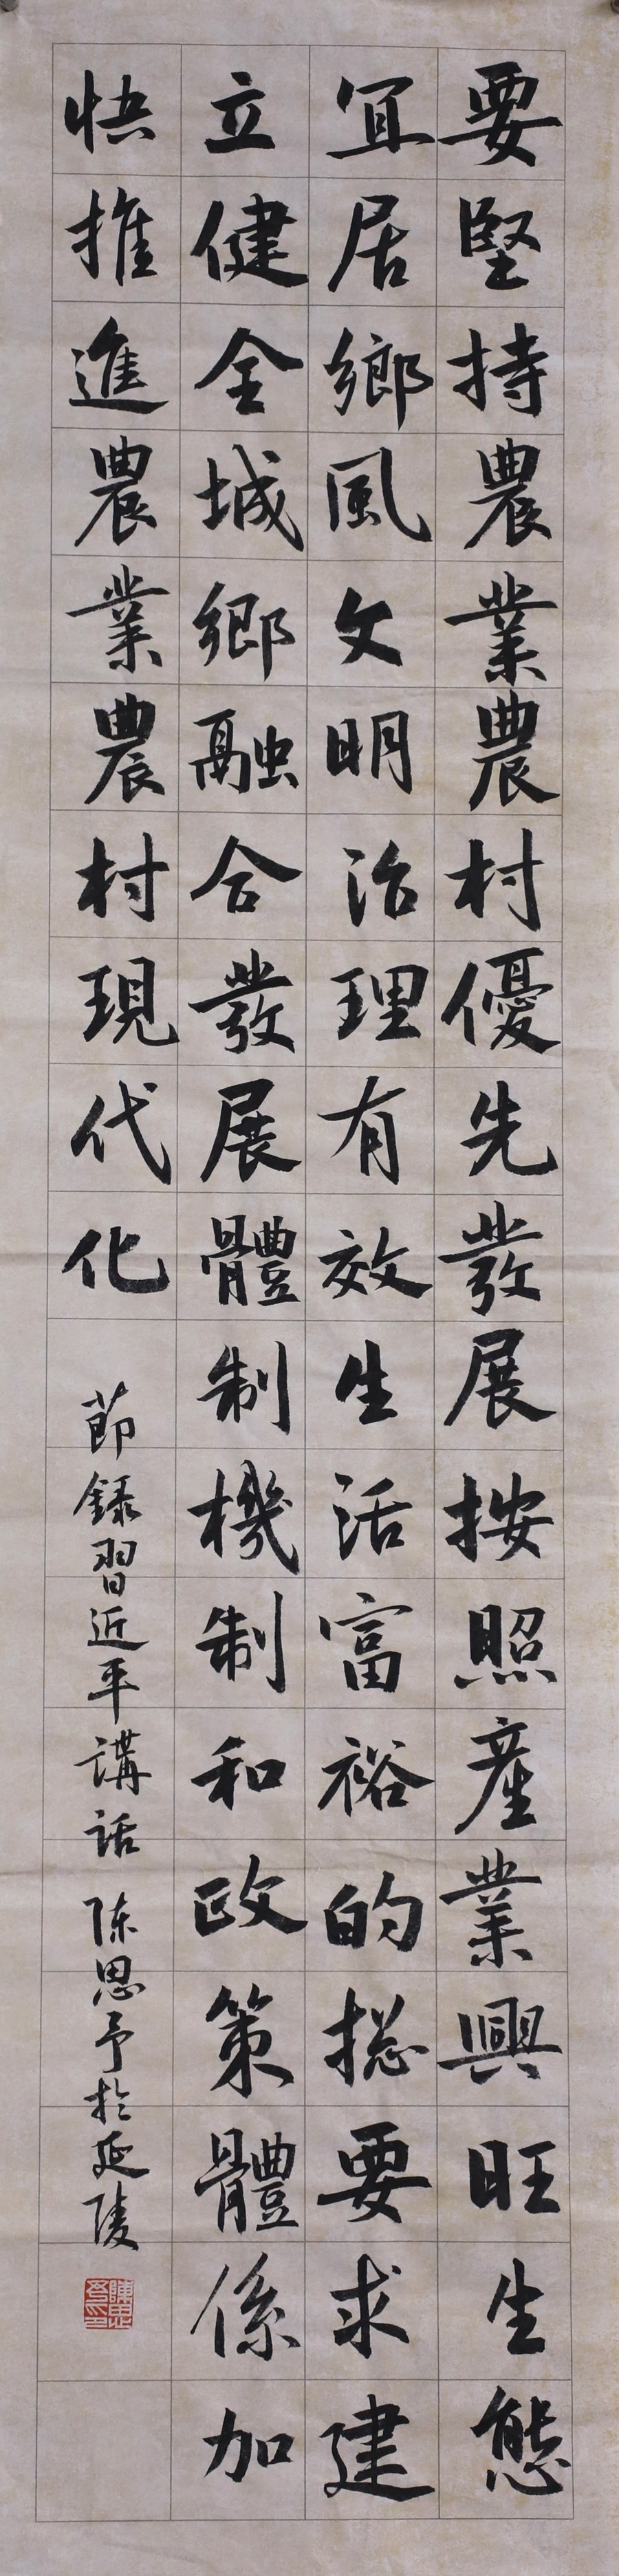 要堅持農業農村優先發展按照產業興旺生態
宜居鄉風文明治理有效生活富裕的總要求建
立健全城鄉融合發展體制機制和政策體係加
快推進農業農村現代化
節錄習近平講話 陳思予於延陵
陳思予印